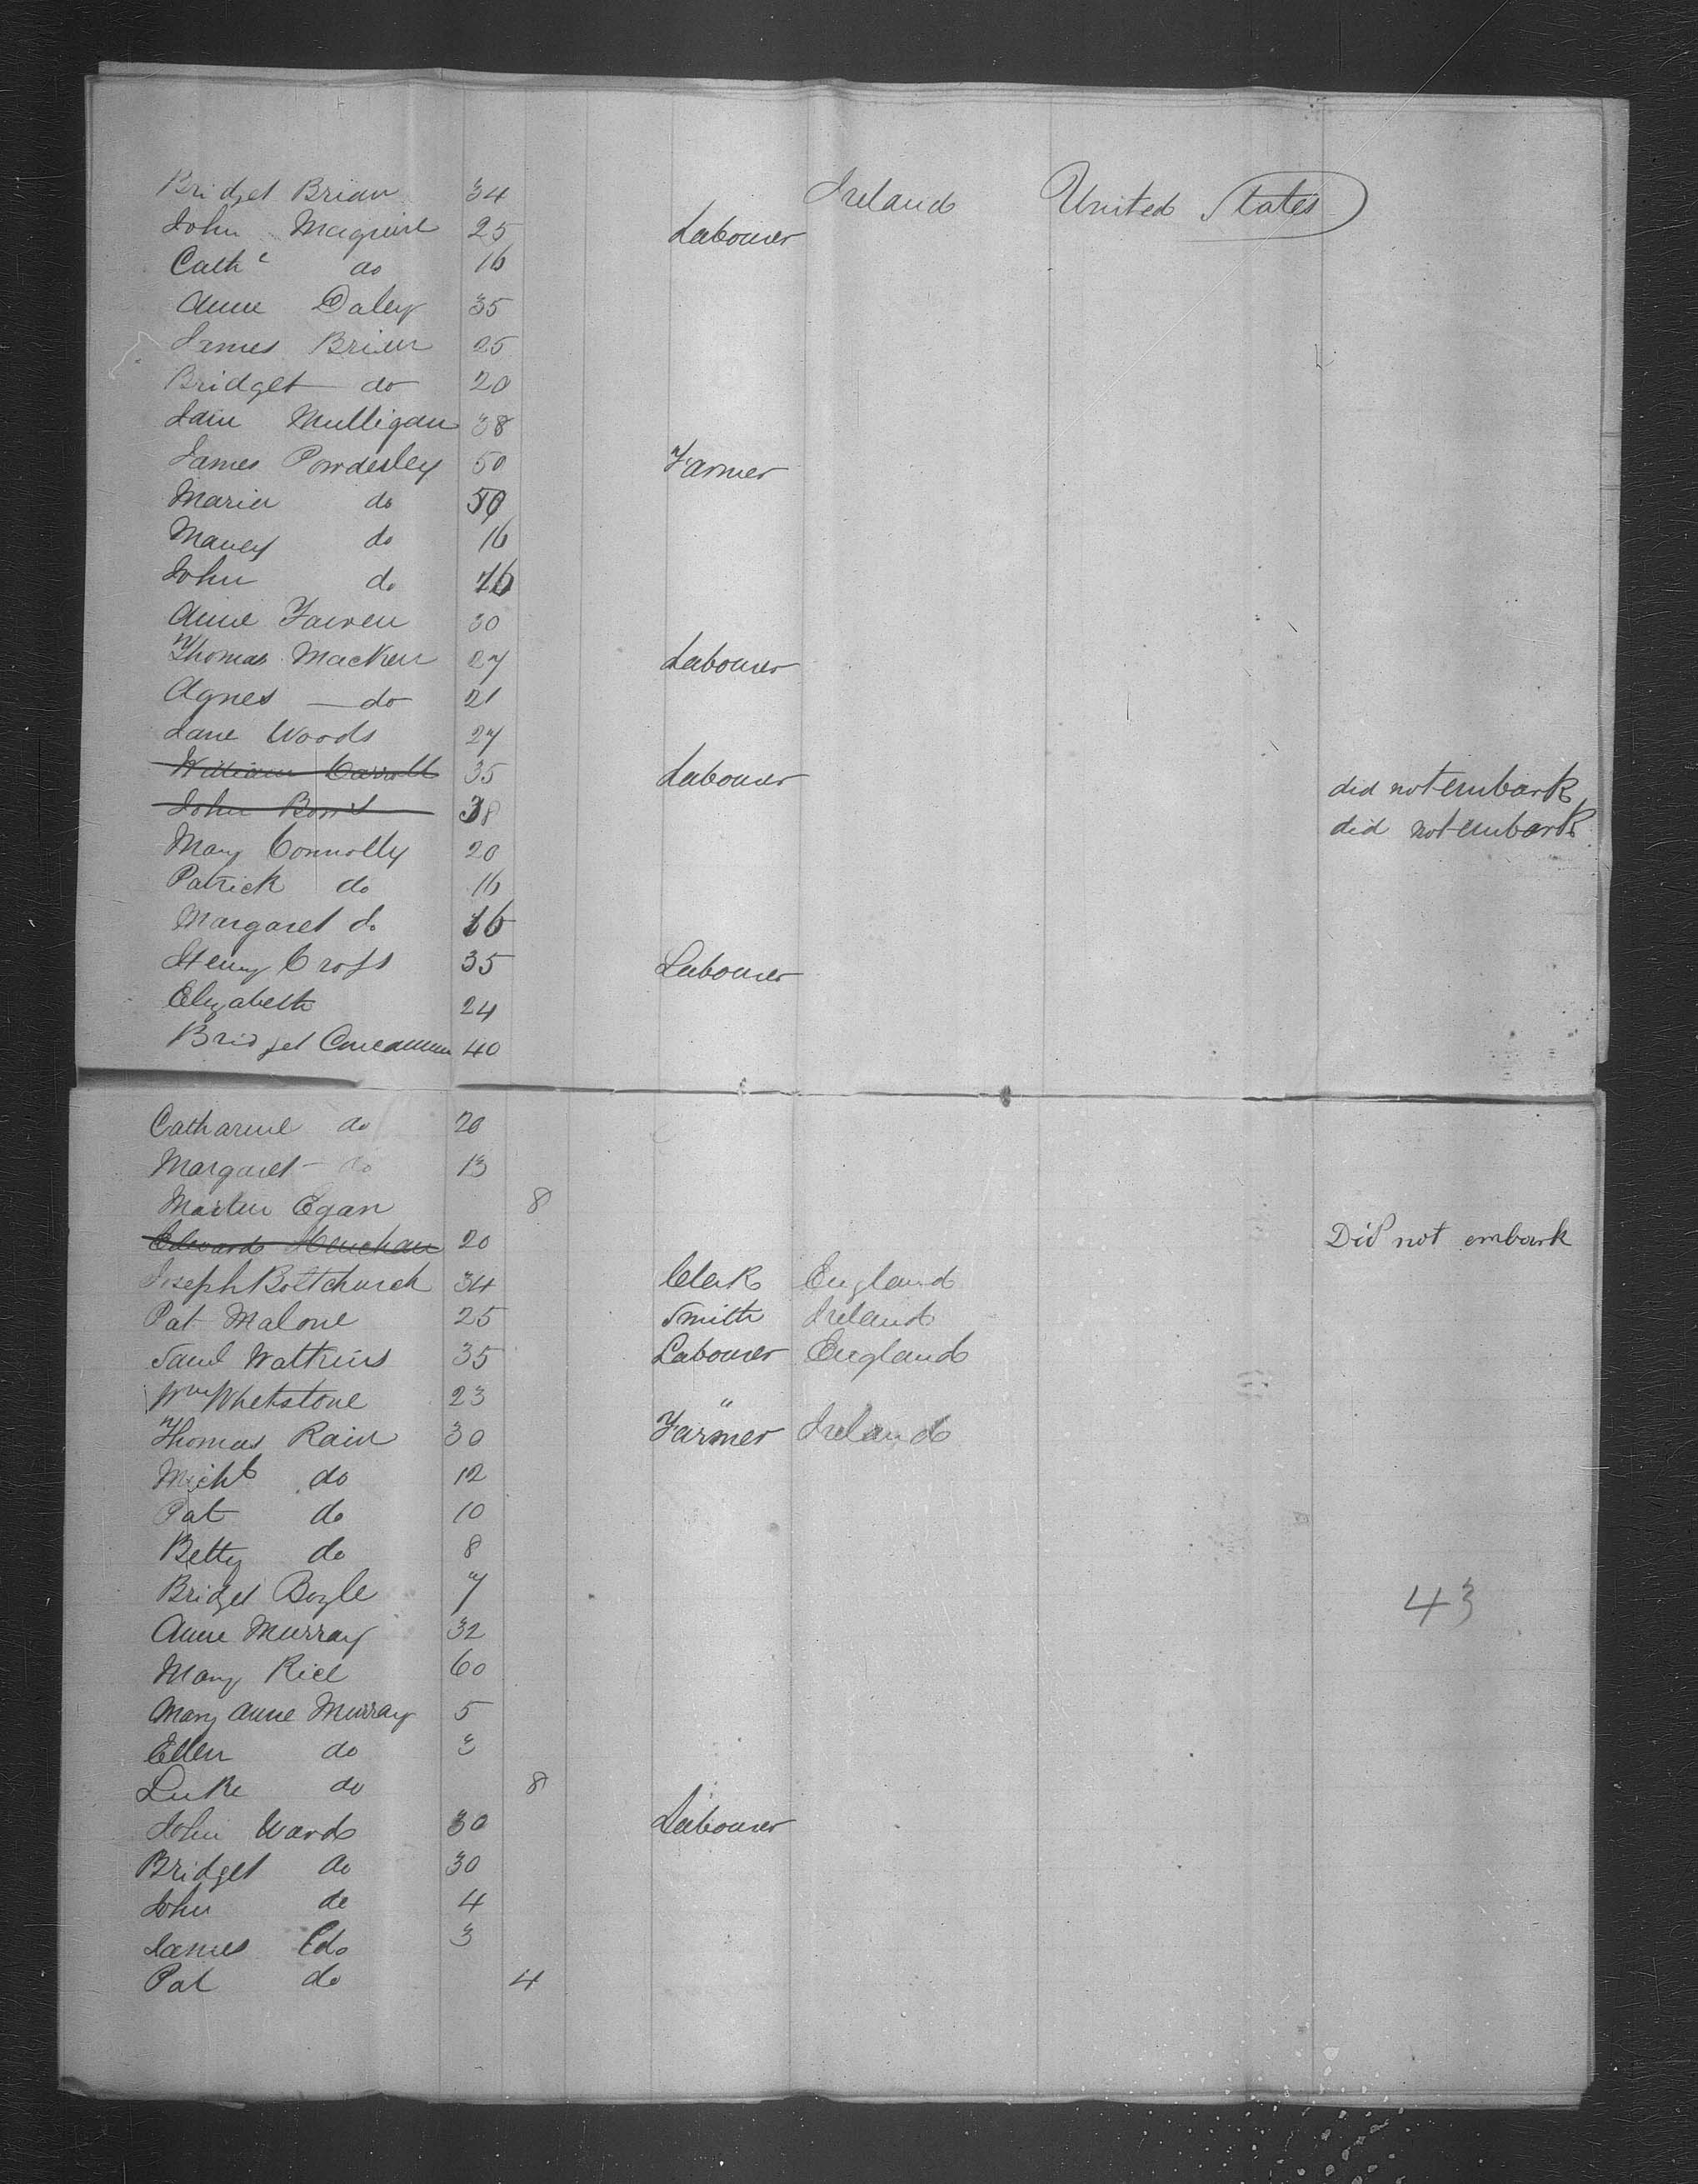 Bridget Brian 34 Ireland United States
John Maguire 25 Labourer
Cathe do 16
Anne Daley 35
James Brien 25
Bridget do 20
Jane Mulligan 38
James Powderley 50 Farmer
Maria do 50
Maney do 16
John do 16
Anne 30
Thomas Macken 27 Labourer
Agnes do 21
Jane Woods 27
William Carroll 35 Labourer did not embark
John 38 did not embark
Mary Connolly 20
Patrick do 16
Margaret do 16
Henry Croft 35 Labourer
Elizabeth 24
Bridget 40
Catharine do 20
Margaret do 13
Martin Egan 8
Edward 20 Did not embark
Joseph Boltchurch 34 Clerk England
Pat Malone 25 Smith Ireland
Saml Watkins 35 Labourer England
Wm Whetstone 23 "
Thomas Rain 30 Farmer Ireland
Michl do 12
Pat do 10
Betty do 8
Bridget Boyle 7 43
Anne Murray 32
Mary Rice 60
Mary Anne Murray 5
Ellen do 3
Luke do 8
John Ward 30 Labourer
Bridget do 30
John do 4
James do 3
Pat do 4